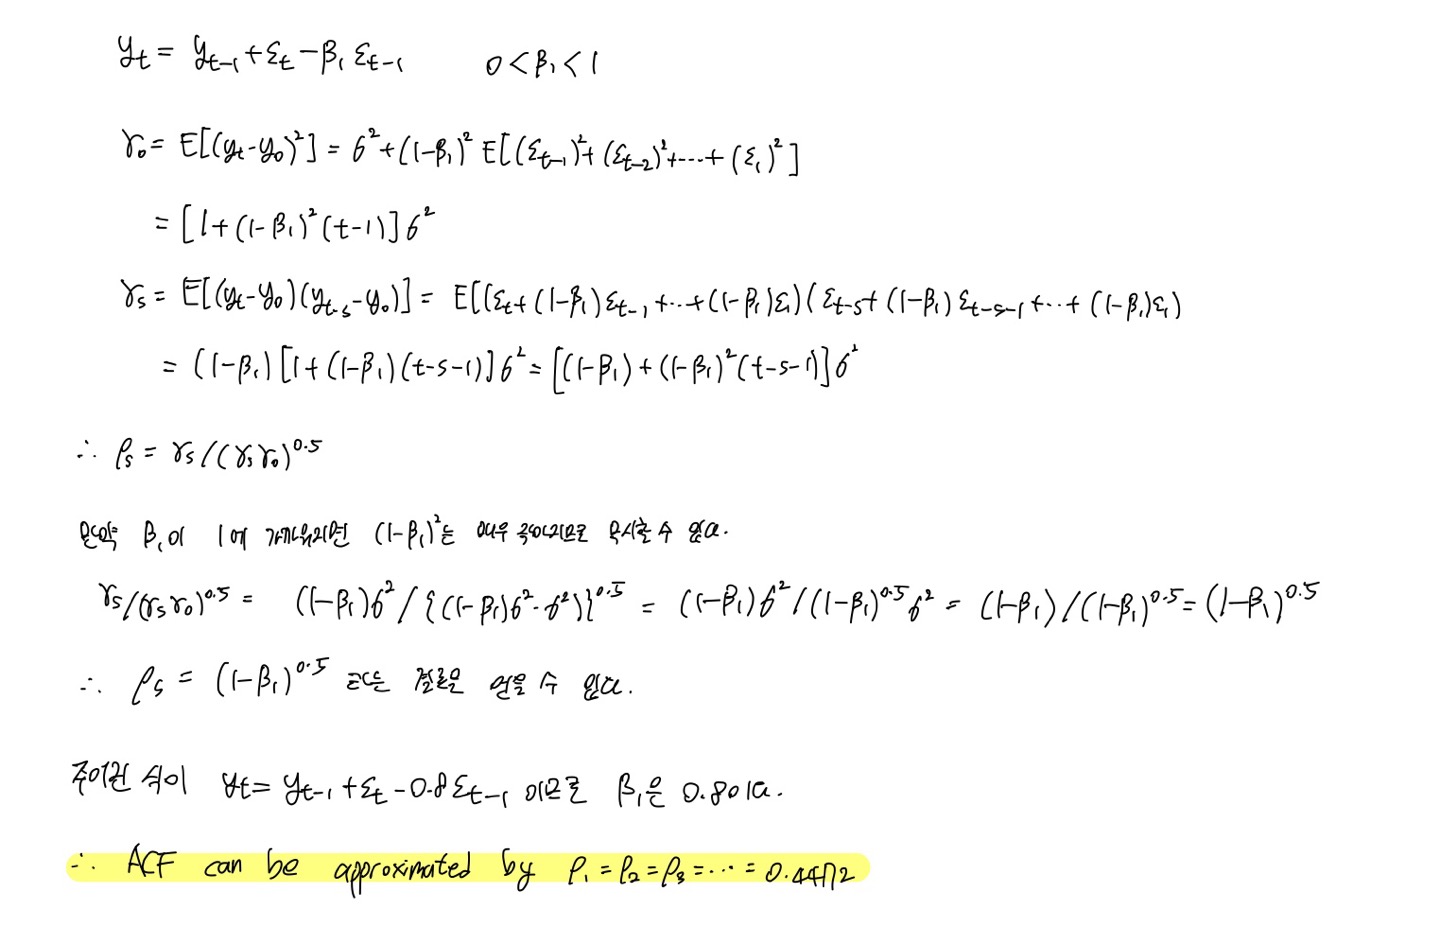 yt = yt-1 + εt - β1 εt-1 0 < β1 < 1
γ0 = E[(yt-y0)²] = σ² + (1-β1)² E[(εt-1)² + (εt-2)² + ... + (ε1)²]
= [1 + (1-β1)² (t-1)] σ²
γs = E[(yt-y0)(yt-s-y0)] = E[(εt + (1-β1) εt-1 + ... + (1-β1)ε1) (εt-s + (1-β1) εt-s-1 + ... + (1-β1)ε1)
= (1-β1) [1 + (1-β1)(t-s-1)] σ² = [(1-β1) + (1-β1)² (t-s-1)] σ²
∴ ρs = γs / (γsγ0)^0.5
만약 β1이 1에 가까워지면 (1-β1)²는 매우 작아지므로 무시할 수 있다.
γs/(γsγ0)^0.5 = (1-β1)σ² / {(1-β1)σ²·σ²)}^0.5 = (1-β1)σ² / (1-β1)^0.5 σ² = (1-β1) / (1-β1)^0.5 = (1-β1)^0.5
∴ ρs = (1-β1)^0.5 라는 결론을 얻을 수 있다.
주어진 식이 yt = yt-1 + εt - 0.8 εt-1 이므로 β1은 0.8이다.
∴ ACF can be approximated by ρ1 = ρ2 = ρ3 = ... = 0.4472